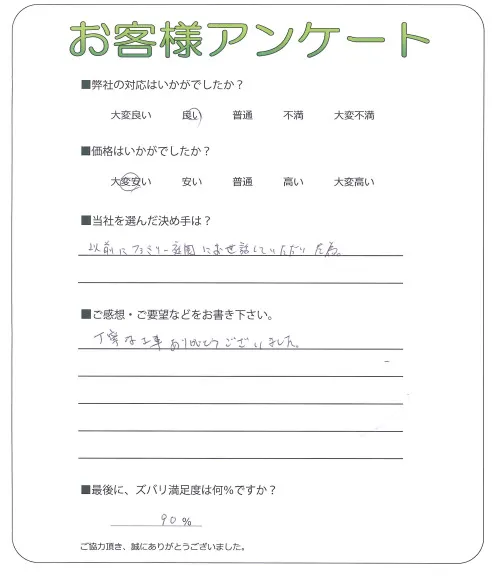 お客様アンケート
■弊社の対応はいかがでしたか？
大変良い 良い 普通 不満 大変不満
■価格はいかがでしたか？
大変安い 安い 普通 高い 大変高い
■当社を選んだ決め手は？
以前にファミリー庭園にお世話していただいた為。
■ご感想・ご要望などをお書き下さい。
丁寧な工事ありがとうございました。
■最後に、ズバリ満足度は何%ですか？
90%
ご協力頂き、誠にありがとうございました。